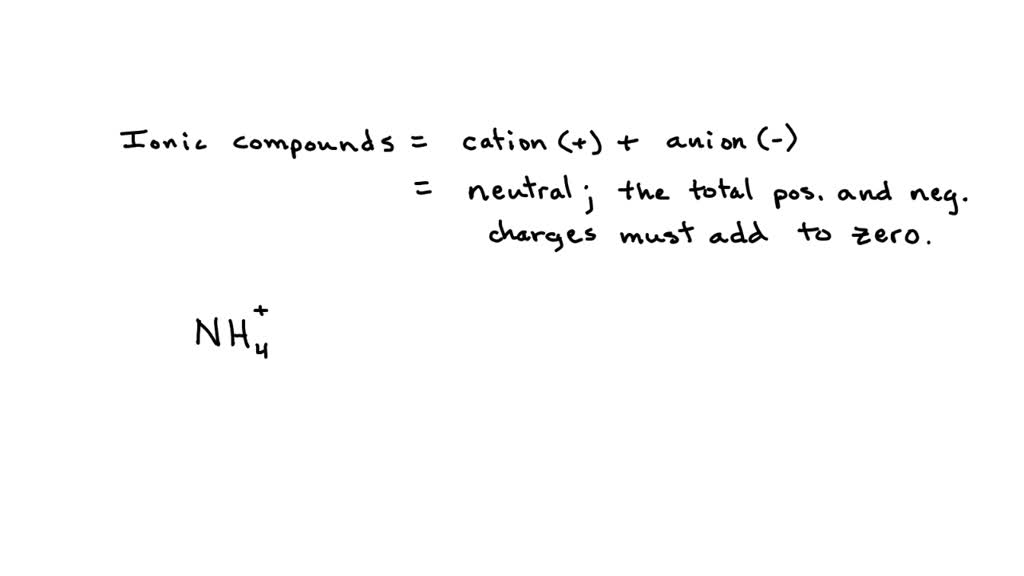 Ionic compounds = cation (+) + anion (-)
= neutral; the total pos. and neg.
charges must add to zero.
NH₄⁺